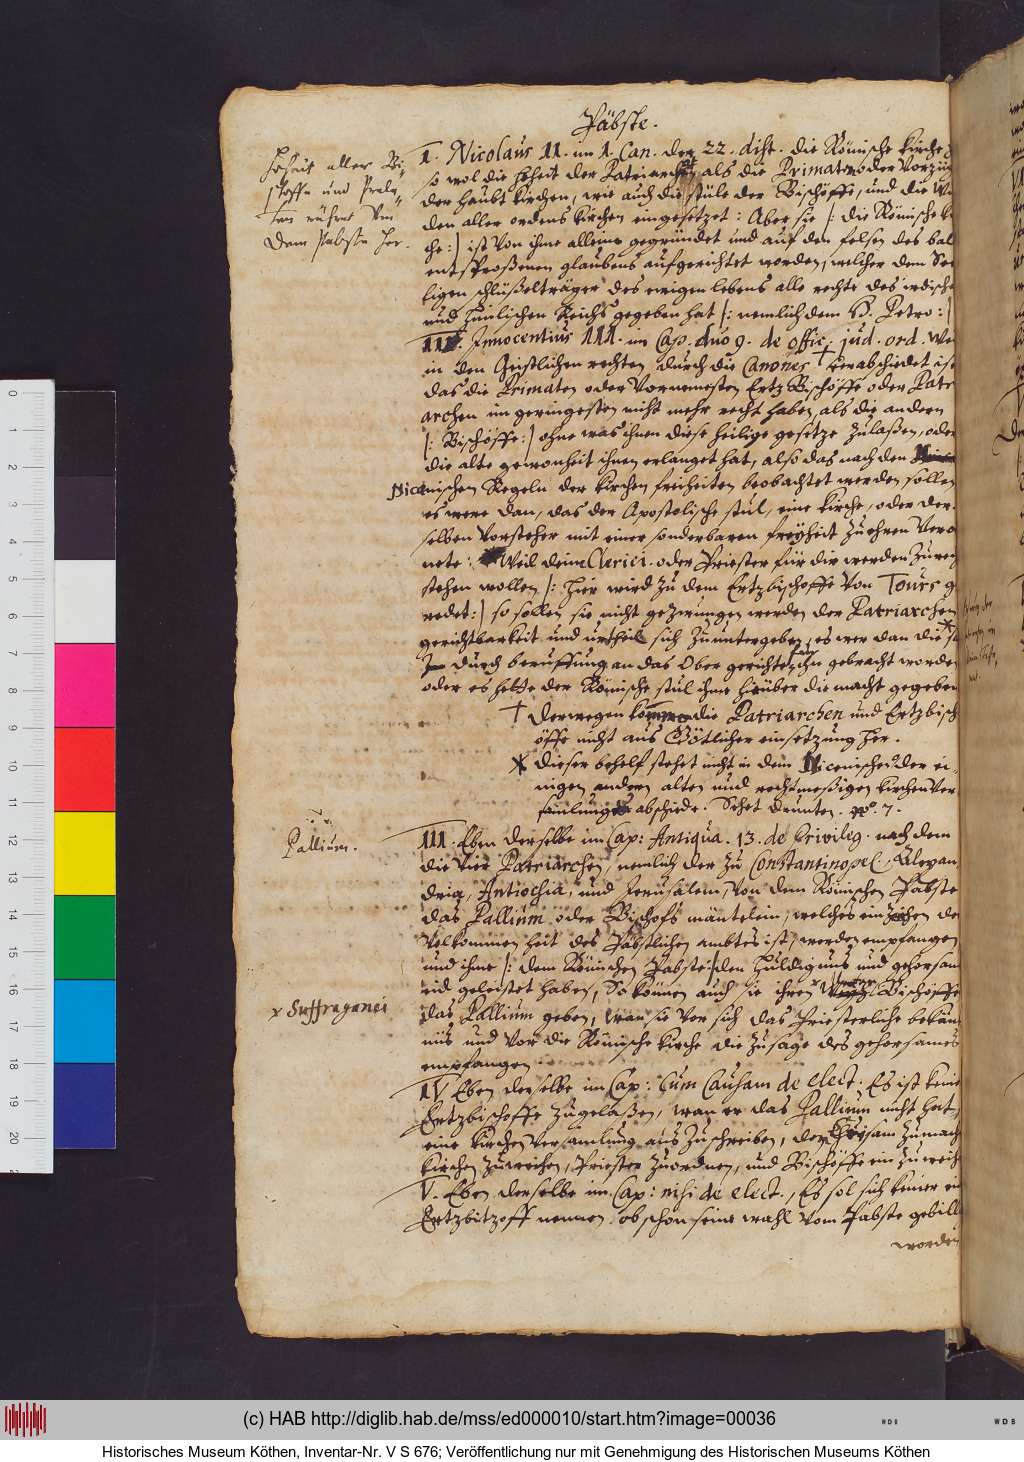 Päbste.
Hoheit aller Bi-
stoffe und Prela-
ten rühret von
dem Pabste her.
I. Nicolaus II. im 1. Can. der 22. dist. die Römische Kirche
so wol die hoheit der Patriarchen als die Primaten oder Vorzüg
der haubt kirchen, wie auch die stüle der Bischöffe, und die
den aller ordens kirchen eingesetzet: Aber sie /: die Römische
che :/ ist von ihme alleine gegründet und auf den felsen des bal
entsproßenen glaubens aufgerichtet worden, welcher dem See
ligen schlüßelträger des ewigen lebens alle rechte des irdische
und himlischen Reichs gegeben hat /: nemlich dem H. Petro :/
II. Innocentius III. im Cap. duo 9. de offic. jud. ord. We
in den Geistlichen rechten durch die Canones † verabschiedet ist
das die Primaten oder Vornemesten Ertz Bischöffe oder Patr
archen im geringesten nicht mehr recht haben, als die andern
/: Bischöffe :/ ohne was ihnen diese heilige gesetze zulaßen, oder
die alte gewonheit ihnen erlanget hat, also das nach den
Nicenischen Regeln der kirchen freiheiten beobachtet werden sollen
es were dan, das der Apostolische stul, eine kirche, oder der-
selben Vorsteher mit einer sonderbaren freyheit zu ehren Vero
nete: Weil deine Clerici oder Priester für dir werden zu re
stehen wollen /: hier wird zu dem Ertzbischoffe von Tours g
redet :/ so sollen sie nicht gezwungen werden der Patriarchen
gerichtbarkeit und urtheil sich zu untergeben, es wer dan die *
durch beruffung an das Ober gerichte, an ihn gebracht worden
oder es hette der Römische stul ihme hierüber die macht gegeben
† Derwegen kommen die Patriarchen und Ertzbisch
öffe nicht aus Götlicher einsetzung her.
* Dieser behelf stehet nicht in dem Nicenischen oder ei-
nigen andern alten und rechtmeßigen kirchen Ver
samlungs abschiede. Sehet drunten. 7.
Pallium.
III. Eben derselbe im Cap: Antiqua. 13. de Privileg. nach dem
die vier Patriarchen, nemlich der zu Constantinopel, Alexan
dria, Antiochia, und Jerusalem, von dem Römischen Pabste
das Pallium oder Bischofs mäntelein, welches ein zeichen de
Volkommenheit des Päbstlichen ambtes ist, werden empfangen
und ihme /: dem Römischen Pabste :/ den huldigung und gehorsam
eid geleistet haben, So können auch sie ihren x Bischöffe
x Suffraganei
das Pallium geben, wan sie vor sich das Priesterliche bekän
nüs und vor die Römische kirche die zusage des gehorsames
empfangen.
IV. Eben derselbe im Cap: Cum Causam de elect. Es ist keine
Ertzbischoffe zugelaßen, wan er das Pallium nicht hat,
eine kirchen Versamlung aus zuschreiben, den Chrisam zu mach
kirchen zuweihen, Priester zuordnen, und Bischöffe ein zu weih
V. Eben derselbe im Cap: nisi de elect., Es sol sich keiner ei
Ertzbitzoff nennen, ob schon seine wahl vom Pabste gebill
worden
(c) HAB http://diglib.hab.de/mss/ed000010/start.htm?image=00036
Historisches Museum Köthen, Inventar-Nr. V S 676; Veröffentlichung nur mit Genehmigung des Historischen Museums Köthen